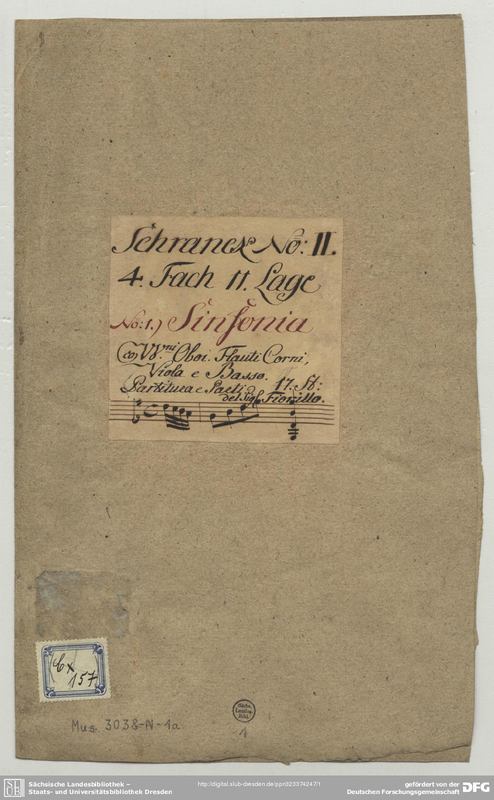 Schranck No: II.
4. Fach 11. Lage
No: 1.) Sinfonia
Co VV.ni Oboi. Flauti Corni,
Viola e Basso.
Partitura e Parti. 17. St:
del Sig.r Fiorillo.
Cx
157
Mus. 3038-N-1a
1
Sächsische Landesbibliothek –
Staats- und Universitätsbibliothek Dresden
http://digital.slub-dresden.de/ppn323374247/1
gefördert von der
Deutschen Forschungsgemeinschaft
DFG